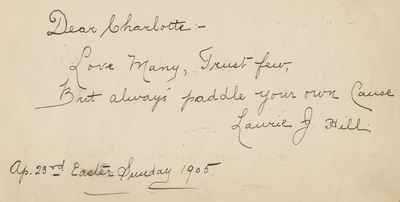 Dear Charlotte:-
Love Many, Trust few,
But always paddle your own Canoe
Laurie J Hill.
Ap. 23rd Easter Sunday 1905.